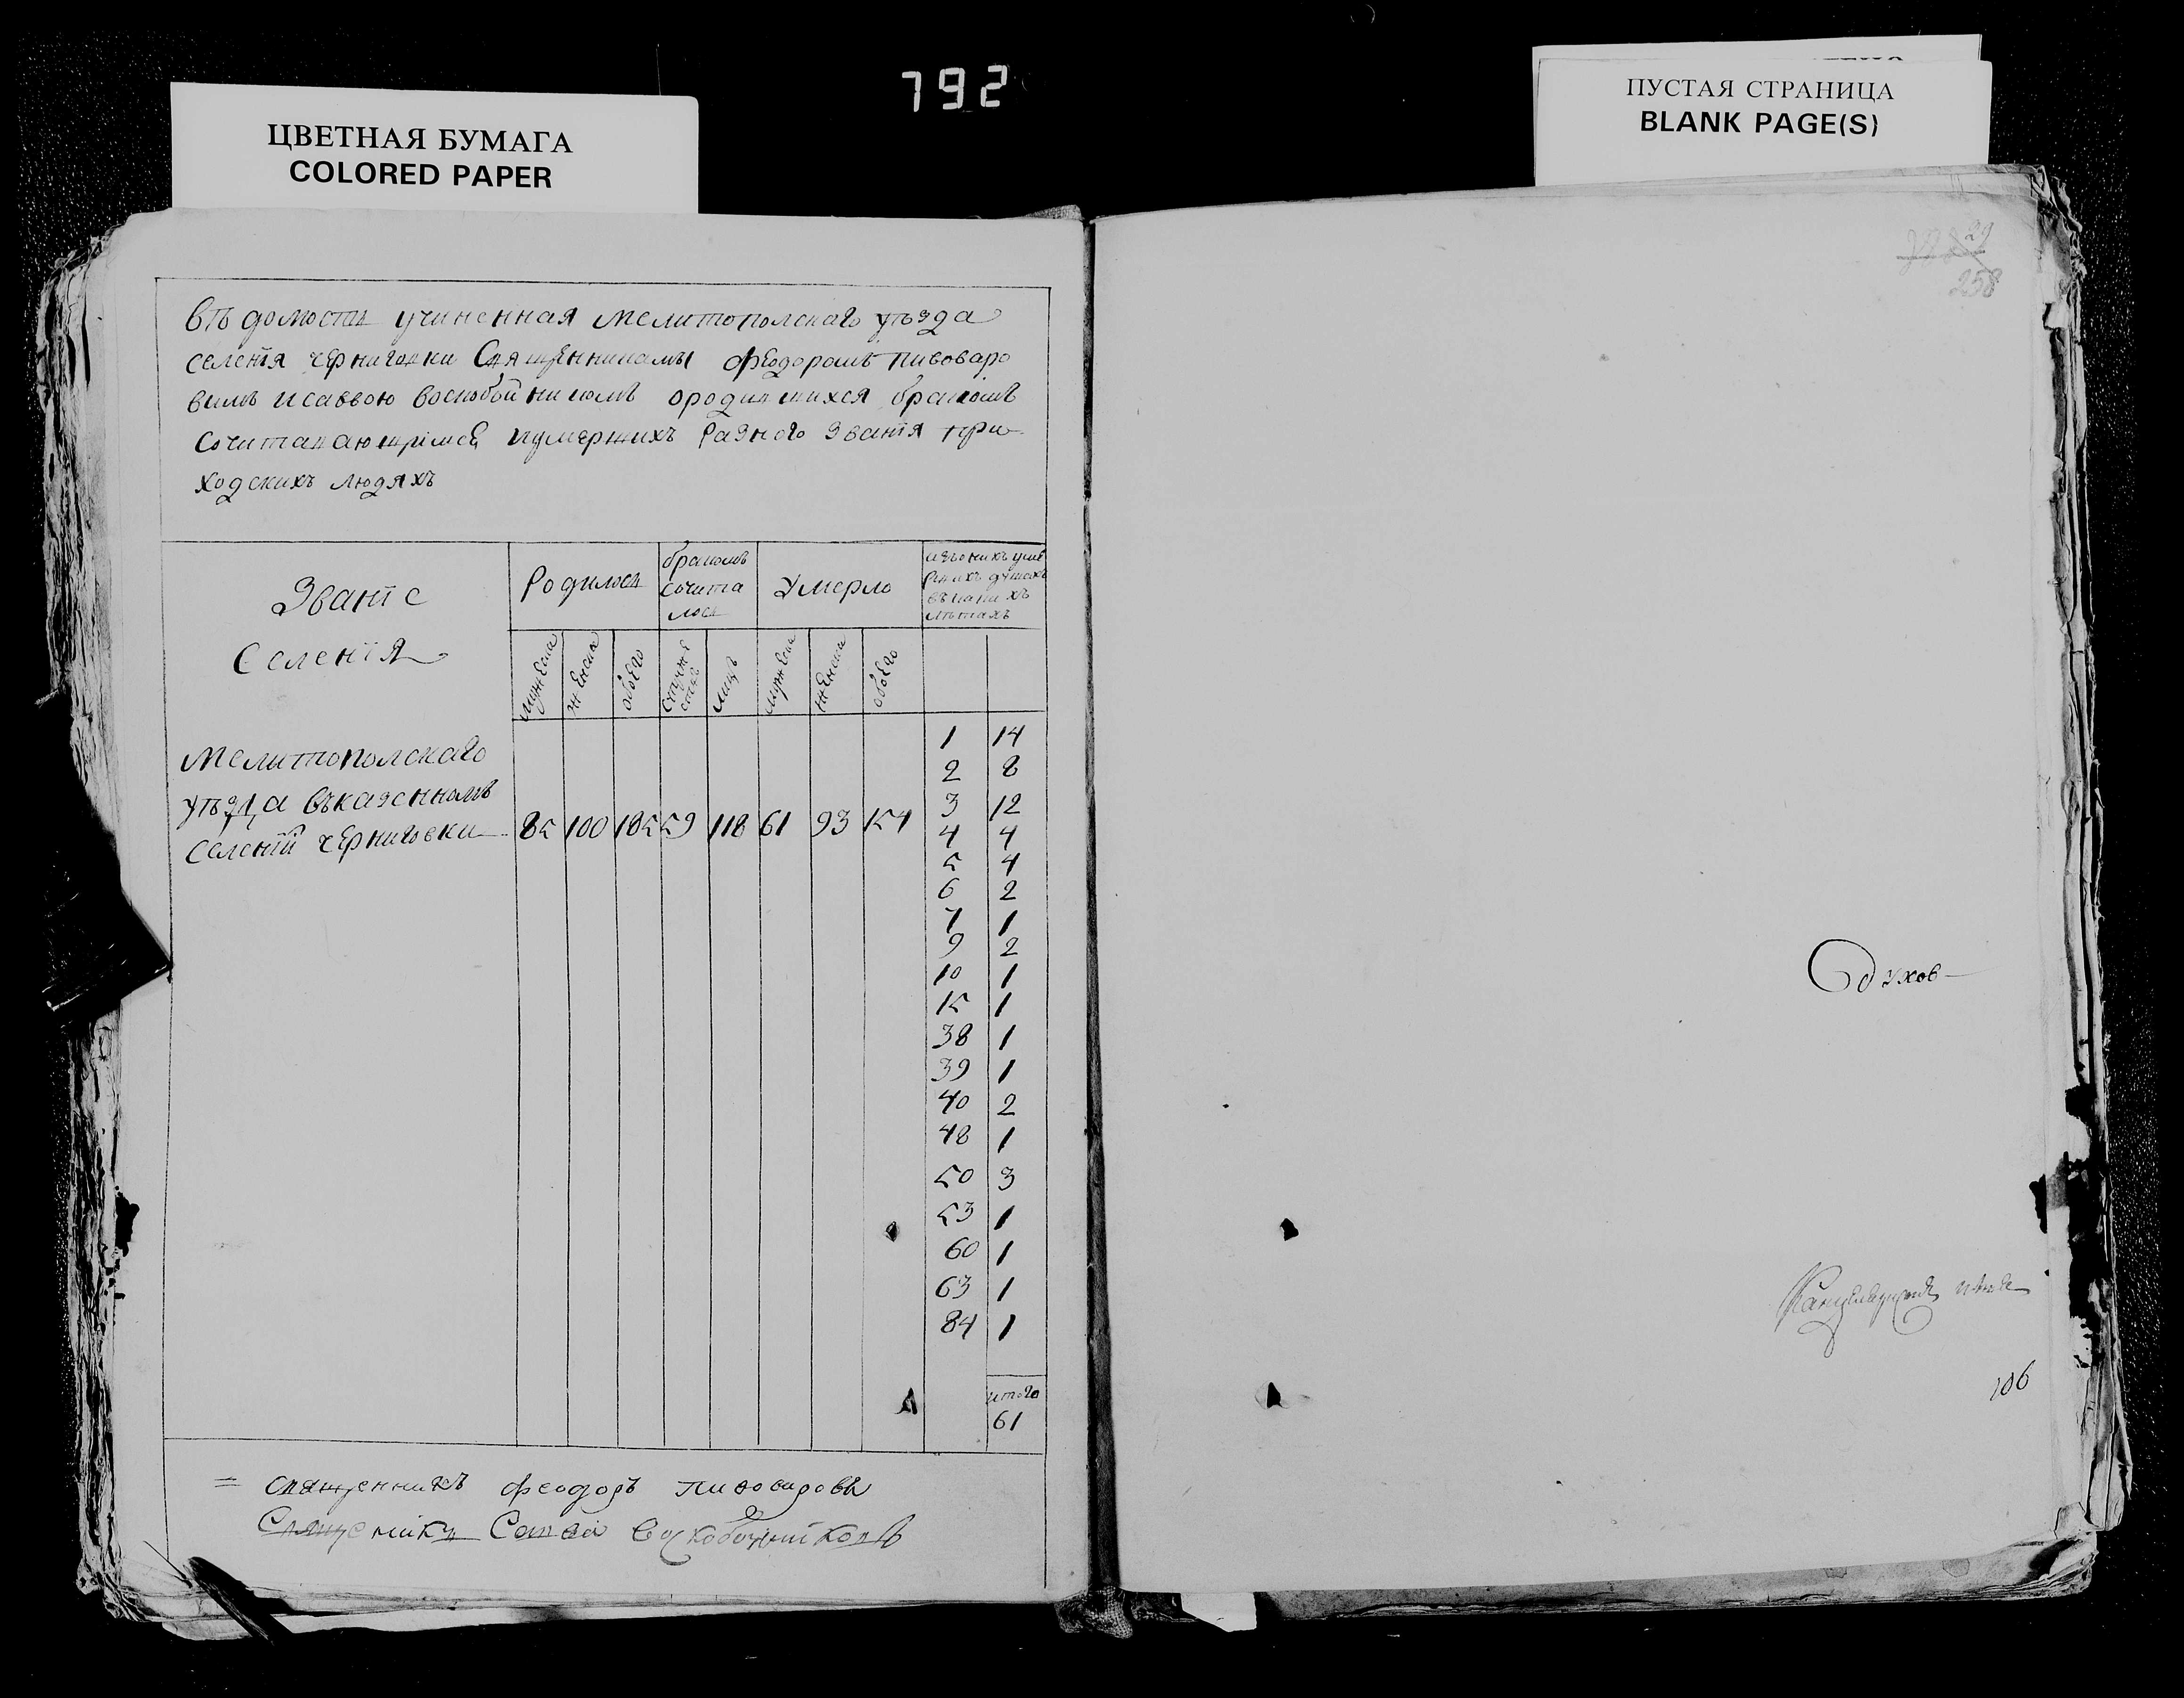 792
ЦВЕТНАЯ БУМАГА
COLORED PAPER
ПУСТАЯ СТРАНИЦА
BLANK PAGE(S)
Вѣдомость учиненная мелитополскаго уѣзда
селенія черниговки Священниками феодоромъ пивоваро
вимъ и саввою воскобойникомъ о родившихся бракомъ
сочитавающихся и умершихъ разного званія при
ходскихъ людяхъ
Званіе
Селенія
Родилось
бракомъ
сочита
лось
Умерло
изъ оныхъ уме
ршихъ душахъ
въ каки хъ
лѣтахъ
мужеска
женска
обоего
супруже
ствъ
лицъ
мужеска
женска
обоего
мелитополскаго
уѣзда въ казенномъ
селеніи черниговки 85 100 185 59 118 61 93 154
1 14
2 8
3 12
4 4
5 4
6 2
7 1
9 2
10 1
15 1
38 1
39 1
40 2
48 1
50 3
53 1
60 1
63 1
84 1
итого
61
= священникъ феодоръ пивоваровъ
Священикъ Савва Воскобойниковъ
29
258
духов
106